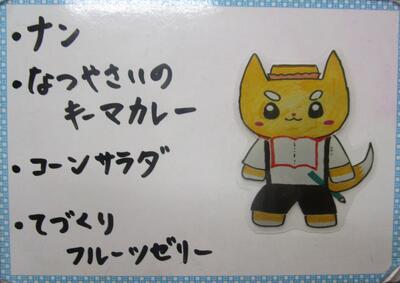 ・ナン
・なつやさいの
キーマカレー
・コーンサラダ
・てづくり
フルーツゼリー